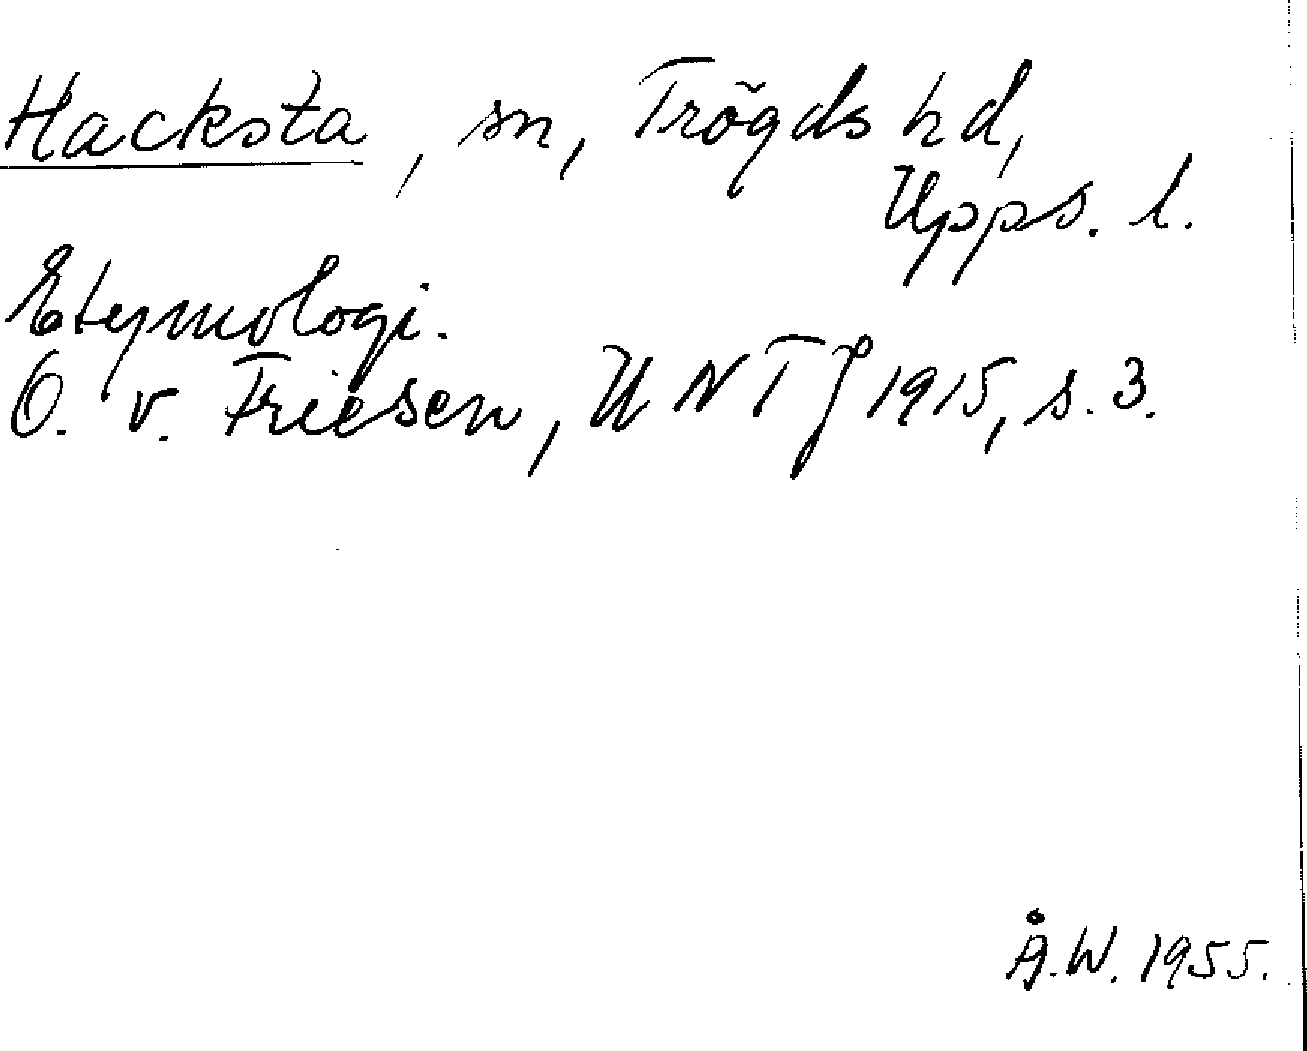 Hacksta, sn, Trögds hd,
Upps. l.
Etymologi.
O. v. Friesen, UNTJ 1915, s. 3.
Å.W. 1955.